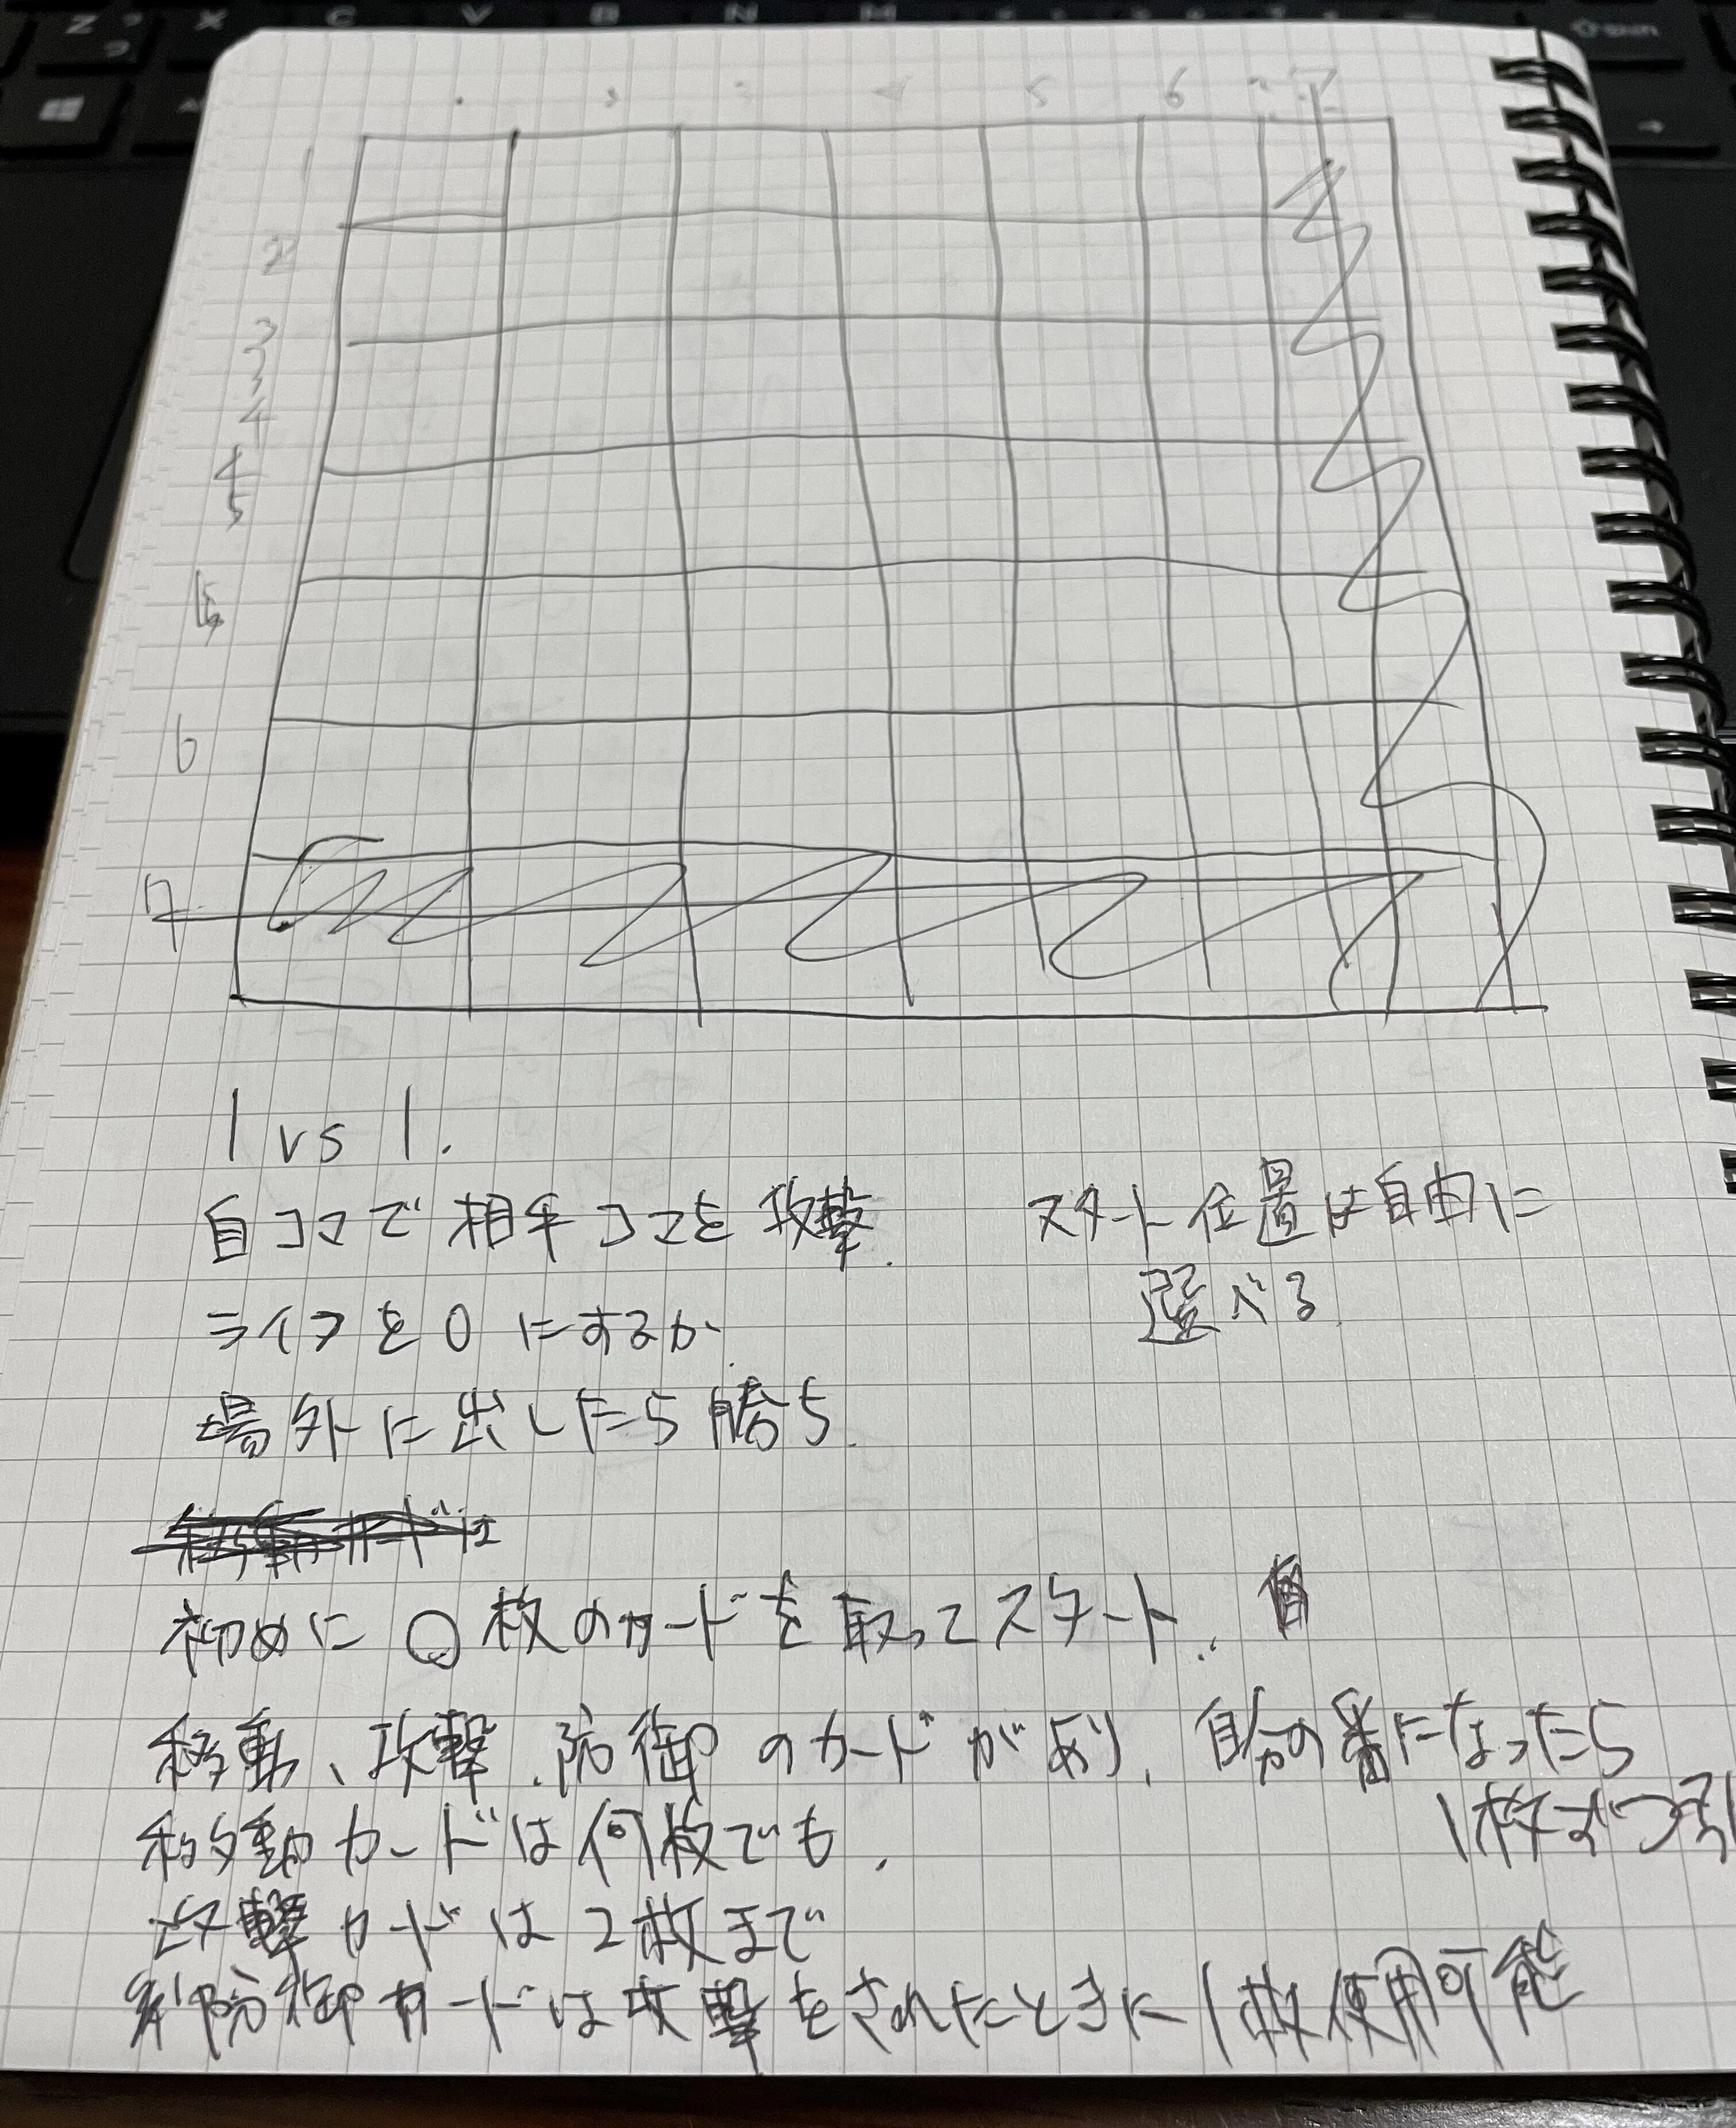 Z
X
C
V
B
N
M
Shift
5
6
7
1
2
3
3
4
4
5
5
6
7
1 vs 1.
自コマで相手コマを攻撃.
スタート位置は自由に
選べる.
ライフを0にするか.
場外に出したら勝ち.
移動カードは
初めに○枚のカードを取ってスタート.
移動、攻撃、防御のカードがあり、自分の番になったら
1枚ずつ引
移動カードは何枚でも.
攻撃カードは2枚まで
防御カードは攻撃をされたときに1枚使用可能